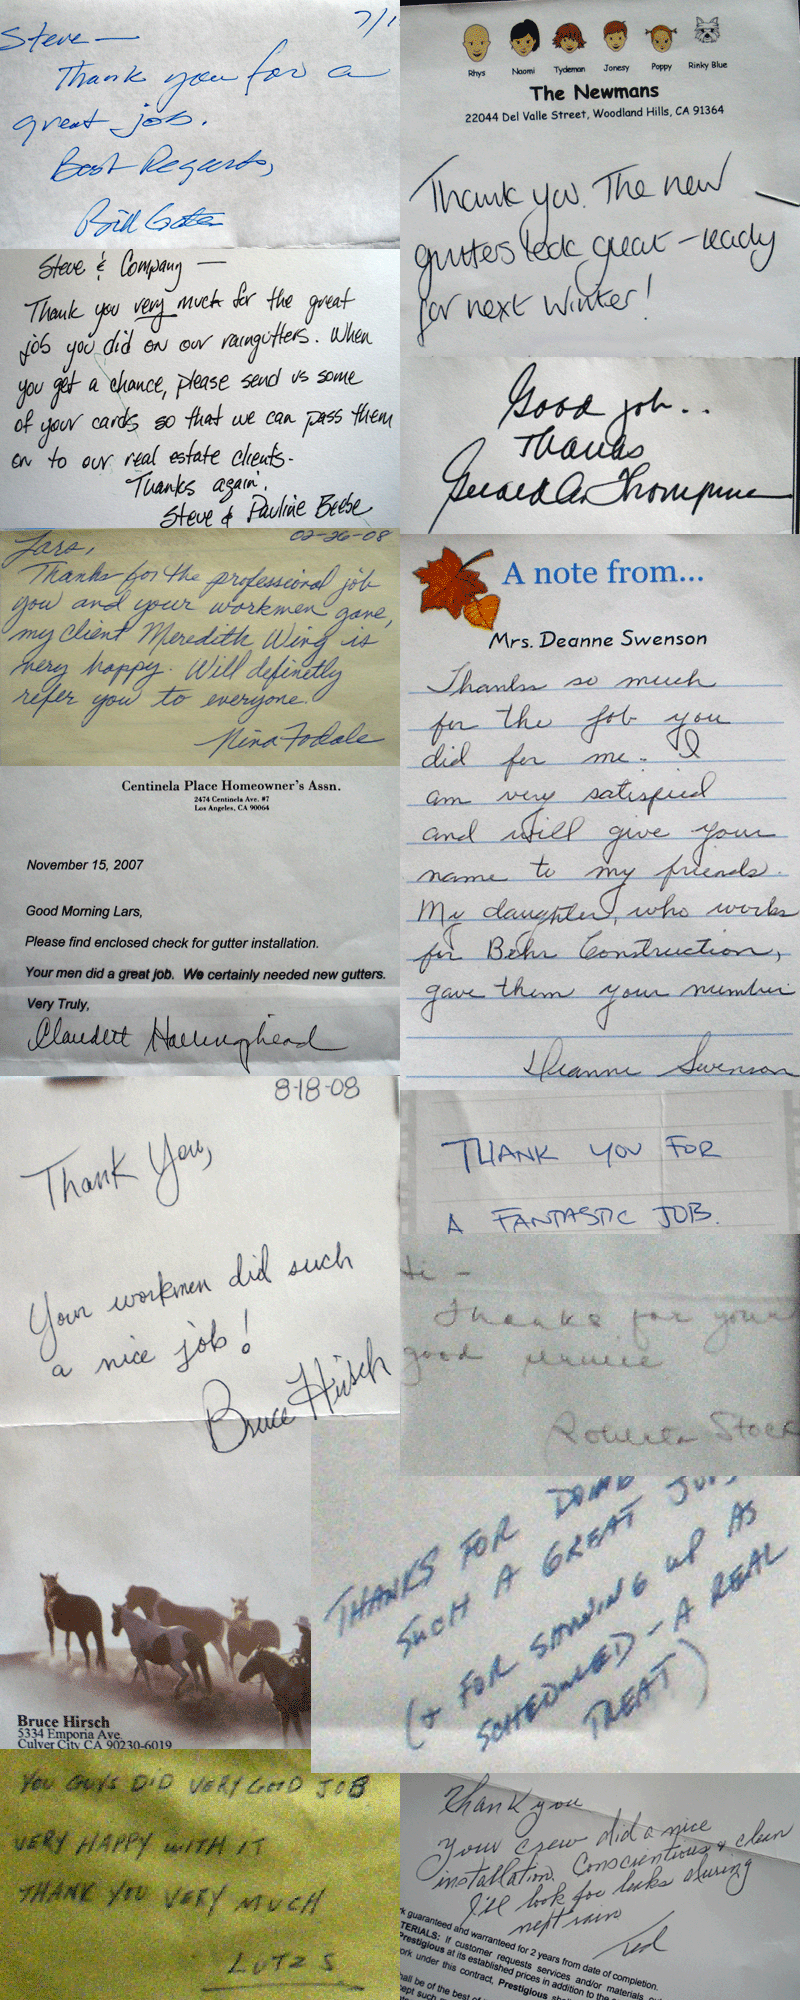 7/1
Steve —
Thank you for a
great job.
Best Regards,
Bill Gates
Rhys Naomi Tydeman Jonesy Poppy Rinky Blue
The Newmans
22044 Del Valle Street, Woodland Hills, CA 91364
Thank you. The new
gutters look great – ready
for next winter!
Steve & Company —
Thank you very much for the great
job you did on our raingutters. When
you get a chance, please send us some
of your cards so that we can pass them
on to our real estate clients.
Thanks again.
Steve & Pauline Beebe
Good job..
Thanks
Thompson
02-26-08
Lars,
Thanks for the professional job
you and your workmen gave,
my client Meredith Wing is
very happy. Will definetly
refer you to everyone.
Nina Fodale
A note from...
Mrs. Deanne Swenson
Thanks so much
for the job you
did for me. I
am very satisfied
and will give your
name to my friends.
My daughter, who works
for Behr Construction,
gave them your number
Deanne Swenson
Centinela Place Homeowner's Assn.
2474 Centinela Ave. #7
Los Angeles, CA 90064
November 15, 2007
Good Morning Lars,
Please find enclosed check for gutter installation.
Your men did a great job. We certainly needed new gutters.
Very Truly,
Claudett
8-18-08
Thank You,
Your workmen did such
a nice job!
Bruce Hirsch
THANK YOU FOR
A FANTASTIC JOB.
Hi –
Thanks for your
good service
Roberta Stock
Bruce Hirsch
5334 Emporia Ave.
Culver City CA 90230-6019
THANKS FOR DOING
SUCH A GREAT JOB
(+ FOR SHOWING UP AS
SCHEDULED – A REAL
TREAT)
YOU GUYS DID VERY GOOD JOB
VERY HAPPY WITH IT
THANK YOU VERY MUCH
LUTZ S
Thank you
Your crew did a nice
installation. Conscientious & clean
I'll look for leaks during
next rain
Ted
guaranteed and warranteed for 2 years from date of completion.
TERIALS: If customer requests services and/or materials
Prestigious at its established prices in addition to the
ork under this contract, Prestigious
hall be of the best of